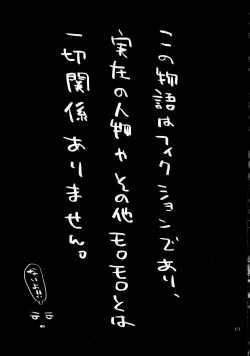 この物語はフィクションであり、
実在の人物やその他モロモロとは
一切関係ありません。
ないよ!!